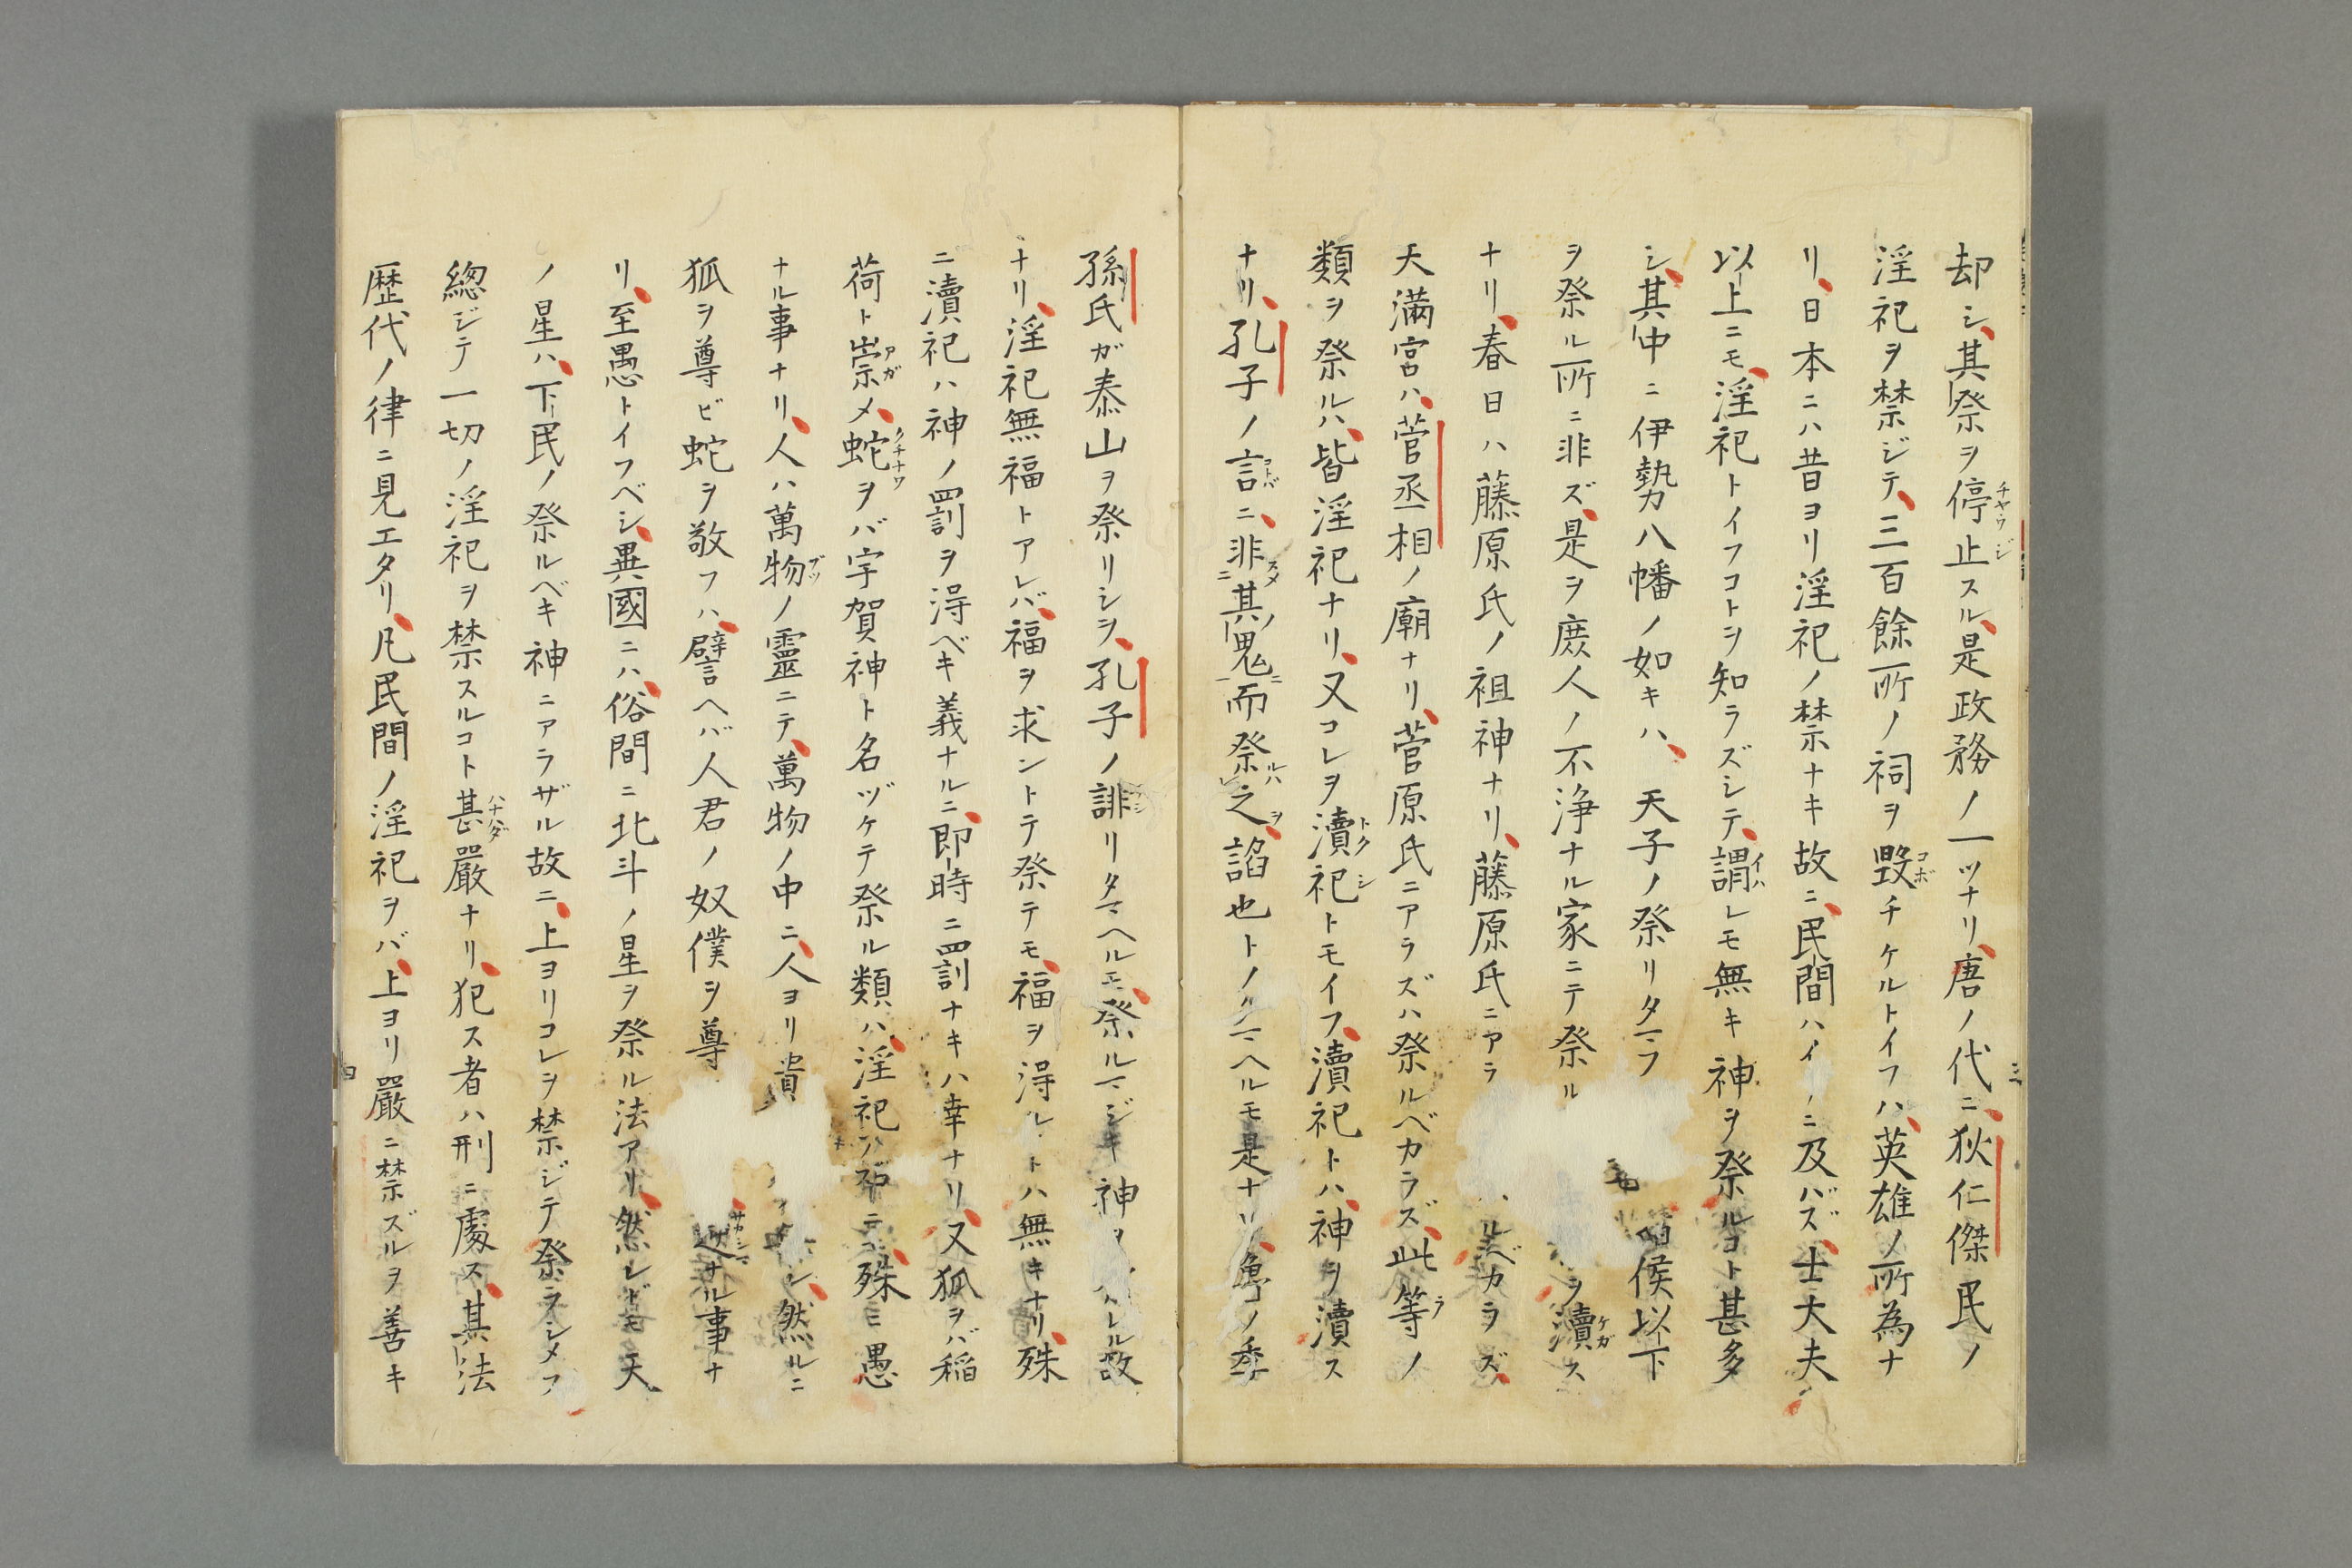 却シ其祭ヲ停止スル是政務ノ一ツナリ唐ノ代ニ狄仁傑民ノ
淫祀ヲ禁ジテ三百餘所ノ祠ヲ毀チケルトイフハ英雄ノ所為ナ
リ日本ニハ昔ヨリ淫祀ノ禁ナキ故ニ民間ハイニ及バズ士大夫
以上ニモ淫祀トイフコトヲ知ラズシテ謂レモ無キ神ヲ祭ルコト甚多
シ其中ニ伊勢八幡ノ如キハ 天子ノ祭リタマフ侯以下
ヲ祭ル所ニ非ズ是ヲ庶人ノ不浄ナル家ニテ祭ルヲ瀆ス
ナリ春日ハ藤原氏ノ祖神ナリ藤原氏ニアラルベカラズ
天満宮ハ菅丞相ノ廟ナリ菅原氏ニアラズハ祭ルベカラズ此等ノ
類ヲ祭ルハ皆淫祀ナリ又コレヲ瀆祀トモイフ瀆祀トハ神ヲ瀆ス
ナリ孔子ノ言ニ非其鬼而祭之諂也トノタマヘルモ是ナリ魯ノ季
孫氏ガ泰山ヲ祭リシヲ孔子ノ誹リタマヘルモ祭ルマジキ神ヲルル故
ナリ淫祀無福トアレバ福ヲ求ントテ祭テモ福ヲ得ルトハ無キナリ殊
ニ瀆祀ハ神ノ罰ヲ得ベキ義ナルニ即時ニ罰ナキハ幸ナリ又狐ヲバ稲
荷ト崇メ蛇ヲバ宇賀神ト名ヅケテ祭ル類ハ淫祀ノ中ニ殊ニ愚
ナル事ナリ人ハ萬物ノ靈ニテ萬物ノ中ニ人ヨリ貴シ然ルニ
狐ヲ尊ビ蛇ヲ敬フハ譬ヘバ人君ノ奴僕ヲ尊逆ナル事ナ
リ至愚トイフベシ異國ニハ俗間ニ北斗ノ星ヲ祭ル法アリ然レドモ天
ノ星ハ下民ノ祭ルベキ神ニアラザル故ニ上ヨリコレヲ禁ジテ祭ラシメズ
總ジテ一切ノ淫祀ヲ禁スルコト甚嚴ナリ犯ス者ハ刑ニ處ス其法
歴代ノ律ニ見エタリ凡民間ノ淫祀ヲバ上ヨリ嚴ニ禁ズルヲ善キ